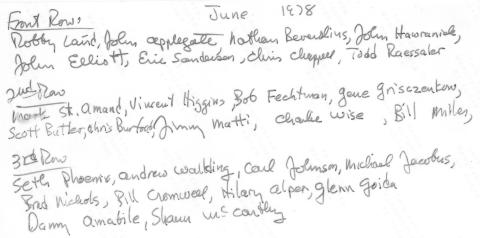 Front Row: June 1978
Robby Laird, John applegate, Nathan Beverslius, John Hawraniak,
John Elliott, Eric Sanderson, Chris Chappel, Todd Raessaler
2nd Row
Mark St. Amand, Vincent Higgins, Bob Fechtman, gene Griszcenkow,
Scott Butler, Chris Burford, Jimmy Matti, Charlie Wise, Bill Miles,
3rd Row
Seth Phoenix, andrew Walding, Carl Johnson, Michael Jacobus,
Brad Nichols, Bill Cromwell, Hilary alper, glenn goida
Danny amabile, Shaun McCarthy